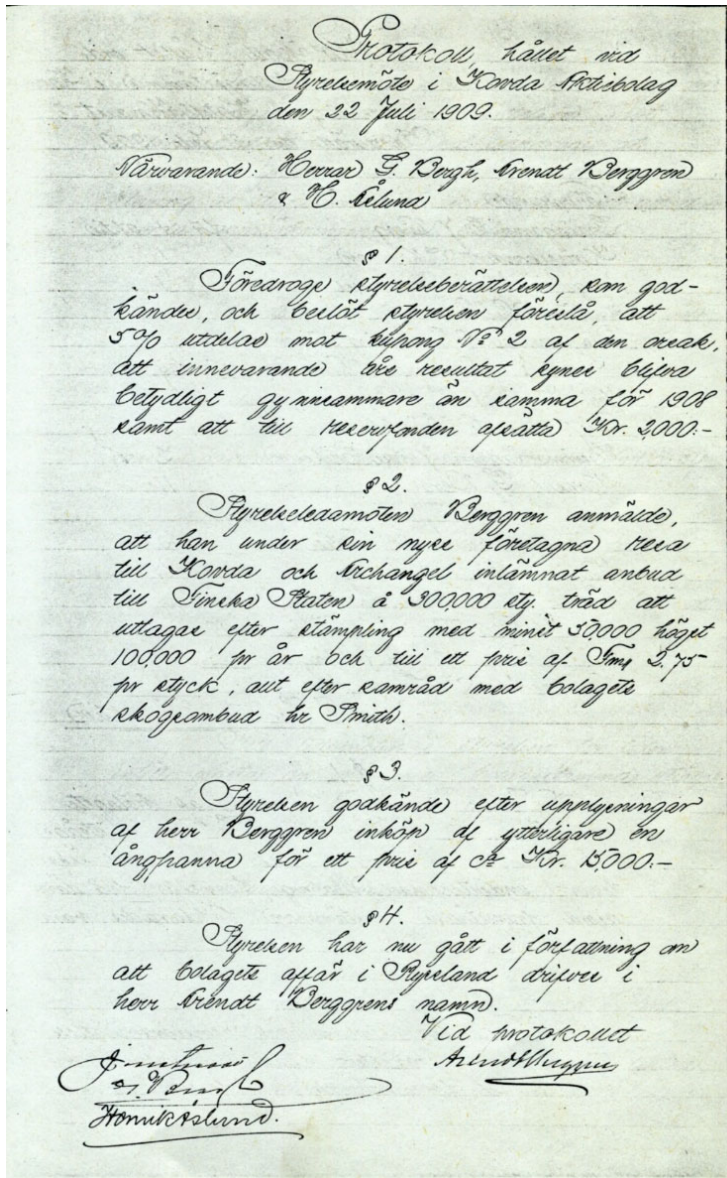 Protokoll, hållet vid
Styrelsemöte i Kovda Aktiebolag
den 22 Juli 1909.
Närvarande: Herrar G. Bergh, Arendt Berggren
& H. Åslund
§ 1.
Föredrogs styrelseberättelsen, som god-
kändes, och beslöt styrelsen föreslå, att
5% utdelas mot kupong No 2 af den orsak,
att innevarande års resultat synes blifva
betydligt gynnsammare än samma för 1908
samt att till reservfonden afsätta Kr. 2,000:-
§ 2.
Styrelseledamoten Berggren anmälde,
att han under sin nyss företagna resa
till Kovda och Archangel inlämnat anbud
till Finska Staten å 300,000 sty. träd att
uttagas efter stämpling med minst 50,000 högst
100,000 pr år och till ett pris af Fmk 2.75
pr styck, allt efter samråd med bolagets
skogsombud hr Smith.
§ 3.
Styrelsen godkände efter upplysningar
af herr Berggren inköp af ytterligare en
ångpanna för ett pris af ca Kr. 15,000:-
§ 4.
Styrelsen har nu gått i författning om
att bolagets affär i Ryssland drifves i
herr Arendt Berggrens namn.
Vid protokollet
Arendt Berggren
G. Bergh
Henrik Åslund.